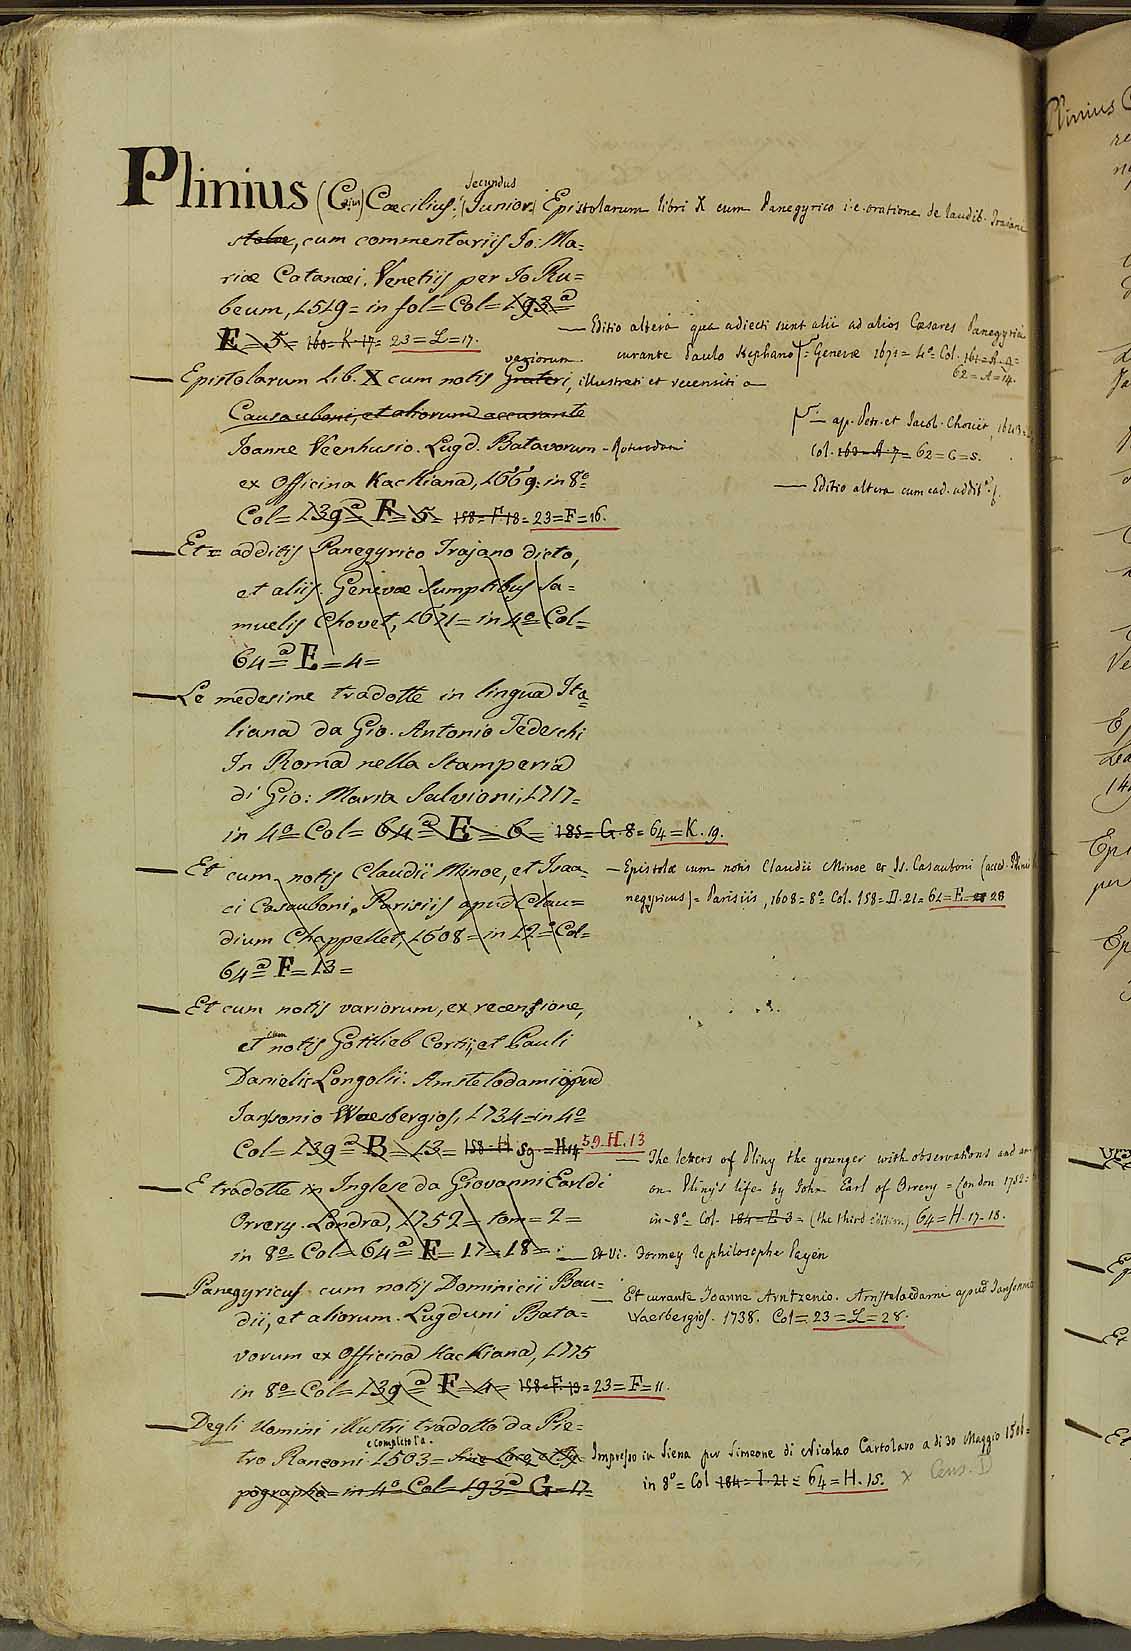 Plinius (Caius) Cæcilius, (secundus Junior) Epistolarum libri X cum Panegyrico i.e. oratione de laudib. Trajani
stolæ, cum commentariis Jo: Ma=
riæ Catanæi. Venetiis per Jo Ru=
beum, 1519= in fol= Col= 193ª
E= 5= 160= K 17= 23= L= 17.
— Editio altera qua adiecti sunt alii ad alios Cæsares Panegyrici
curante Paulo Stephano = Genevæ 1671= 4º= Col. 161= A.
62= A= 14.
— Epistolarum Lib. X cum notis variorum Gruteri, illustrati et recensiti a
Causauboni, et aliorum accurante
Joanne Veenhusio. Lugd. Batavorum - Roterodami
ex Officina Hackiana, 1669: in 8º
Col= 139ª F= 5= 158= F 18= 23=F=16.
— ap. Petr. et Jacob. Chouët, 1643=
Col. 160= A 7= 62= C= 5.
— Editio altera cum ead. addit.
— Et= additis Panegyrico Trajano dicto,
et aliis. Genevæ Sumptibus Sa=
muelis Chovet, 1671= in 4º Col=
64ª E= 4=
— Le medesime tradotte in lingua Ita=
liana da Gio. Antonio Tedeschi
In Roma nella Stamperia
di Gio: Maria Salvioni, 1717=
in 4º Col= 64ª E= 6= 185= G. 8= 64= K. 19.
— Et cum notis Claudii Minoe, et Isaa=
ci Casauboni, Parisiis apud Clau=
dium Chappellet, 1608= in 12= Col=
64ª F= 13=
— Epistolæ cum notis Claudii Minoe et Is. Casauboni (acced. Plinii
negyricus) = Parisiis, 1608= 8º Col. 158= D. 21= 62= E= 28
— Et cum notis variorum, ex recensione,
et cum notis Gottlieb Cortii, et Pauli
Danielis Longolii. Amstelodami apud
Jansonio Waesbergios, 1734= in 4º
Col= 139ª B= 13= 158= H 59.=H.14 59.H.13
— E tradotte in Inglese da Giovanni Earl di
Orrery. Londra, 1752= tom= 2=
in 8º Col= 64ª F= 17= 18=
— The letters of Pliny the younger with observations and an
on Pliny's life by John Earl of Orrery = London 1752=
in= 8º Col. 184= E 3= (the third edition) 64= H. 17. 18.
— Et Vi. Formey le philosophe Payen
— Panegyricus cum notis Dominicii Bau=
dii, et aliorum. Lugduni Bata=
vorum ex Officina Hackiana, 1775
in 8º= Col= 139ª F= 4= 158=F.13= 23= F= 11.
— Et curante Joanne Arntzenio. Amstelædami apud Jansonio
Waesbergios. 1738. Col= 23= L= 28.
— Degli Uomini illustri tradotto da Pie=
tro Ranconi e completo l'a. 1503= sine loco, et Ty=
pographo= in 4º Col= 193ª G= 17=
Impresso in Siena per Simeone di Nicolao Cartolaro a di 30 Maggio 1506=
in 8º= Col 184= I. 21= 64= H. 15. x Cens. D